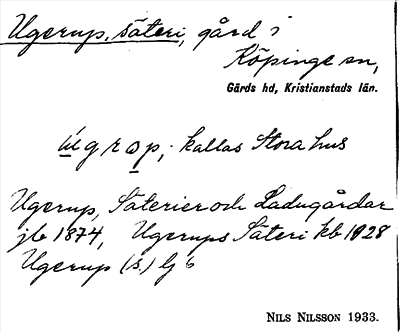 Ugerup, säteri, gård i
Köpinge sn,
Gärds hd, Kristianstads län.
ugrop, kallas Stora hus
Ugerup, Säterier och Ladugårdar
jb 1874, Ugerups Säteri kb 1928
Ugerup (s.) lj 6
NILS NILSSON 1933.